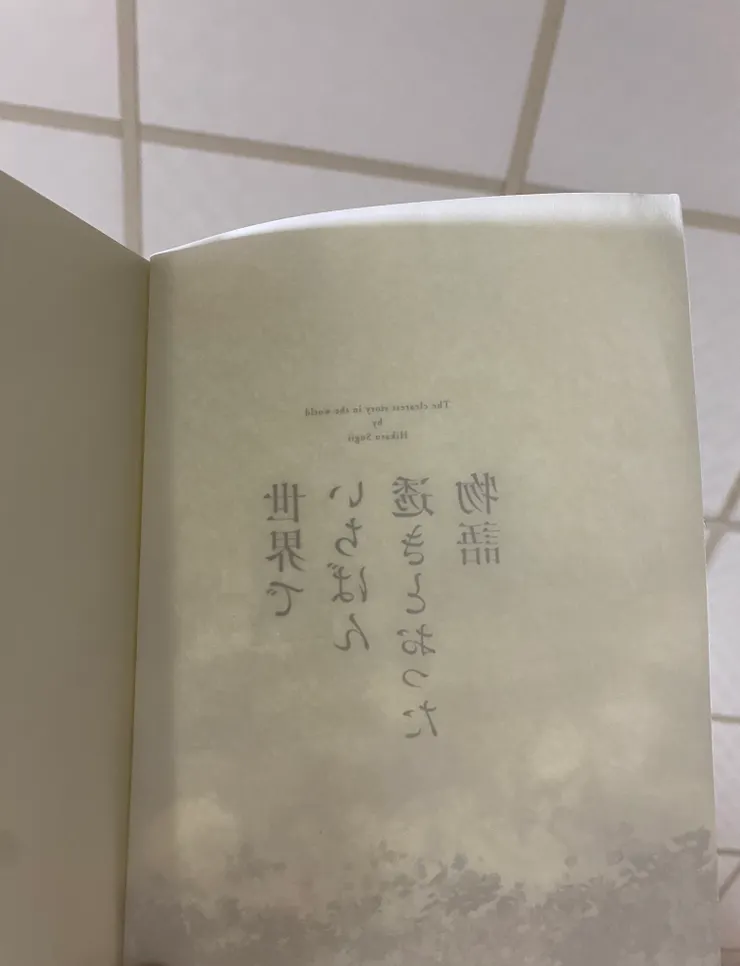 The clearest story in the world
by
Hikaru Sugii
世界で
いちばん
透きとおった
物語